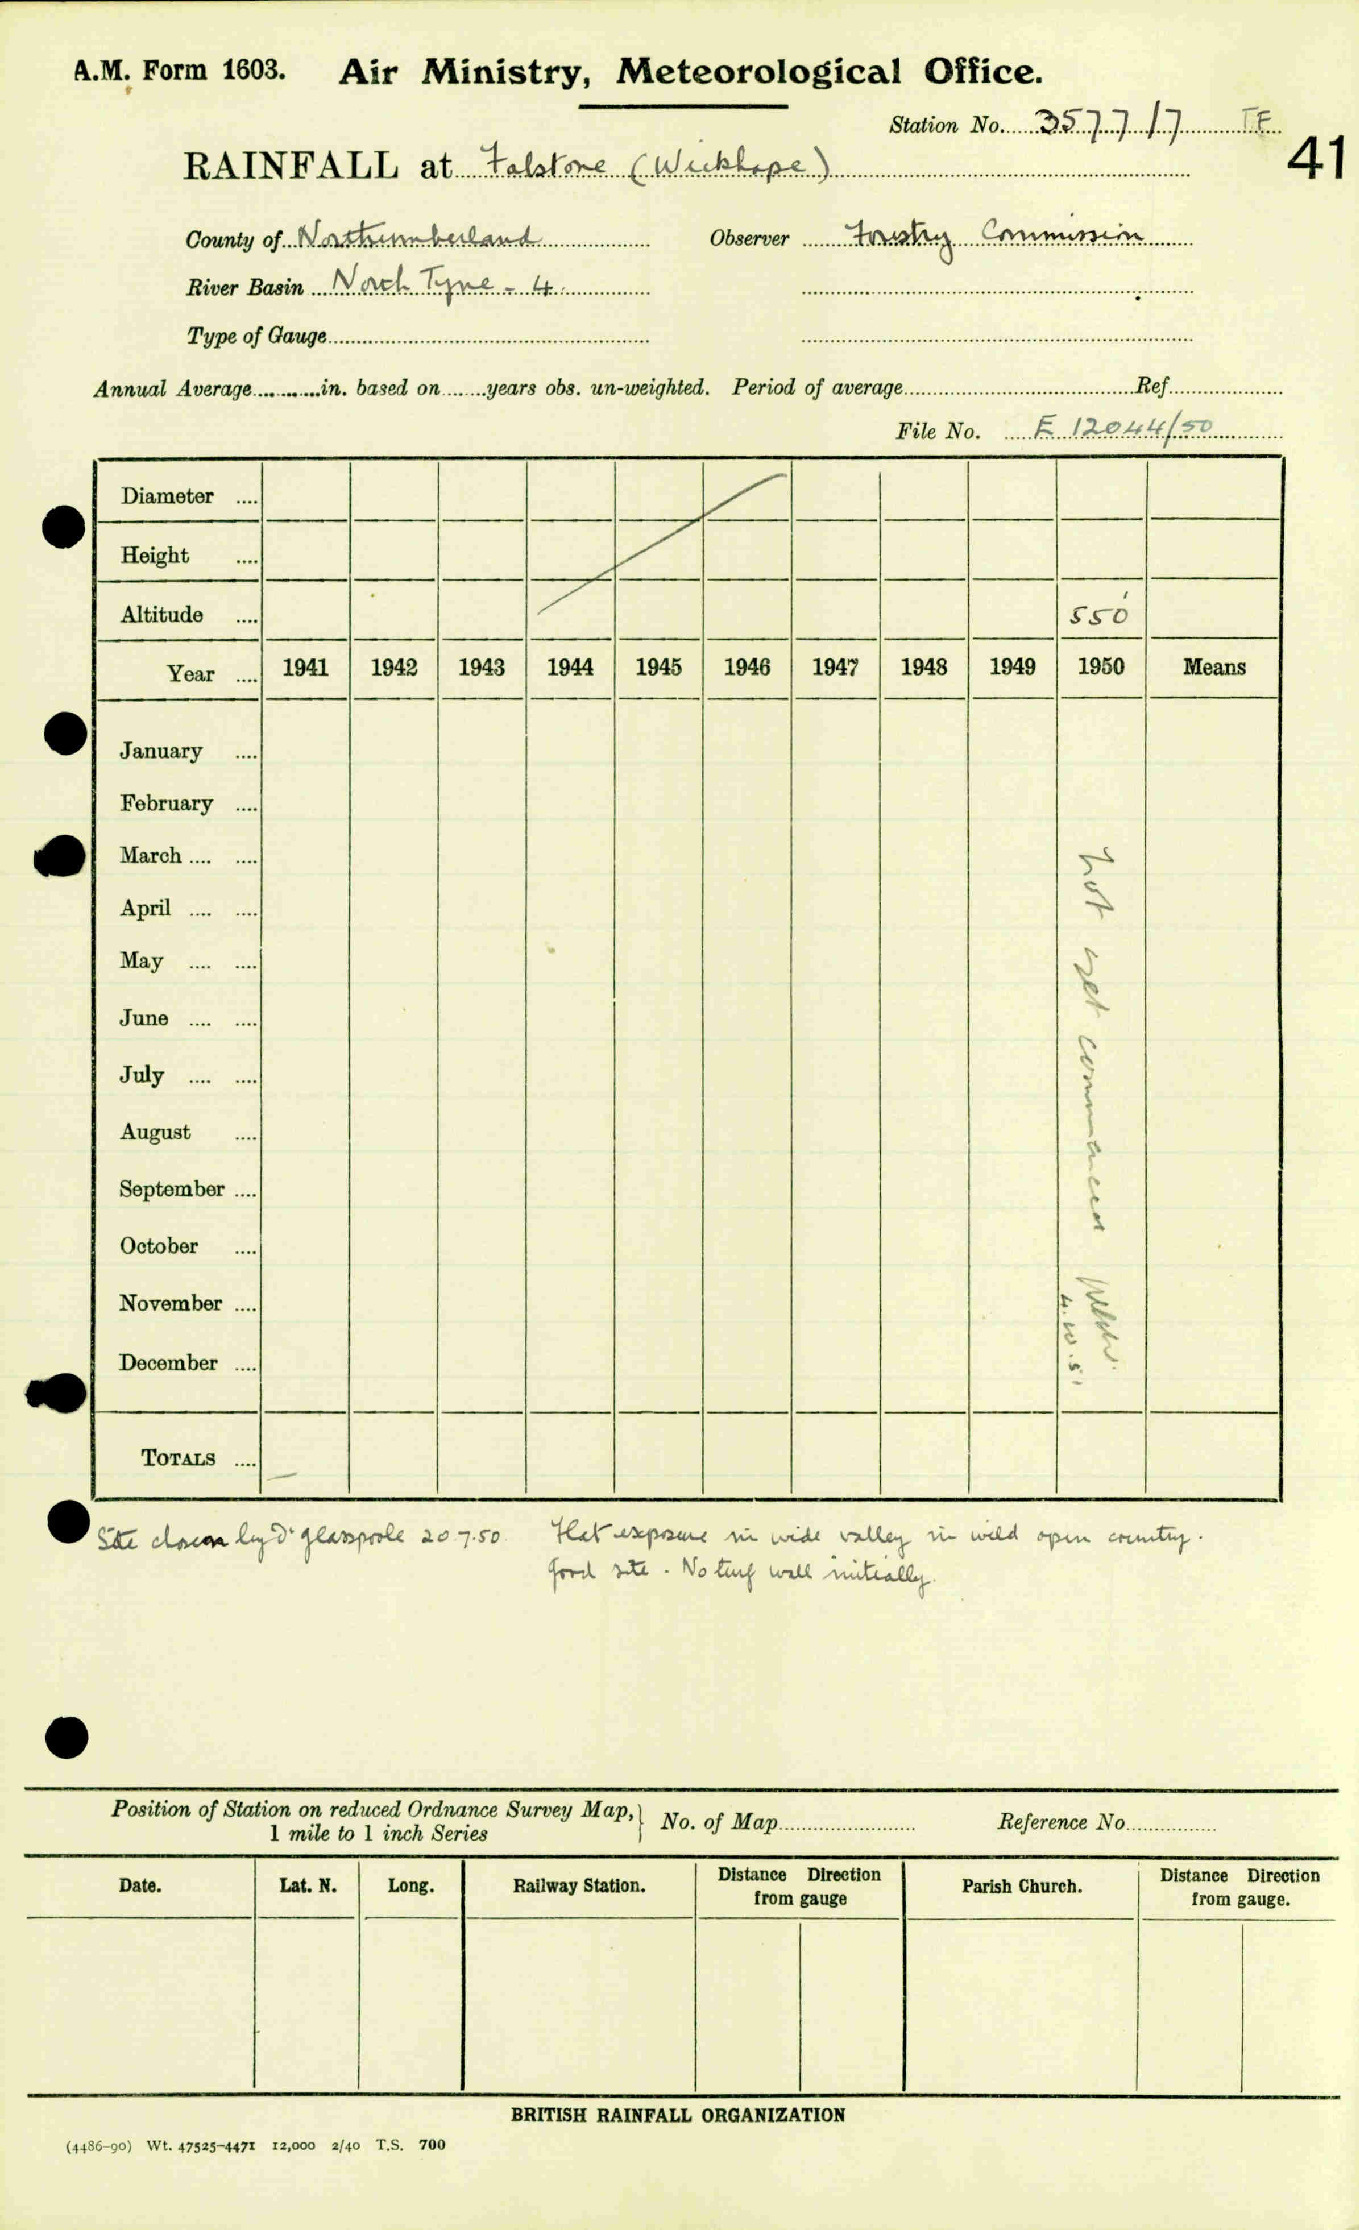 A.M. Form 1603. Air Ministry, Meteorological Office.
Station No. 3577/7 T.F.
41
RAINFALL at Falstone (Wickhope)
County of Northumberland Observer Forestry Commission
River Basin North Tyne - 4.
Type of Gauge
Annual Average in. based on years obs. un-weighted. Period of average Ref
File No. E 12044/50
Diameter
Height
Altitude 550'
Year 1941 1942 1943 1944 1945 1946 1947 1948 1949 1950 Means
January
February
March
April
May
June
July
August
September
October
November
December
TOTALS
not yet commenced
4.10.51
Site chosen by Dr Glasspoole 20.7.50. Flat exposure in wide valley in wild open country.
Good site. No turf wall initially.
Position of Station on reduced Ordnance Survey Map, } No. of Map Reference No.
1 mile to 1 inch Series
Date. Lat. N. Long. Railway Station. Distance Direction from gauge Parish Church. Distance Direction from gauge.
BRITISH RAINFALL ORGANIZATION
(4486-90) Wt. 47525-4471 12,000 2/40 T.S. 700